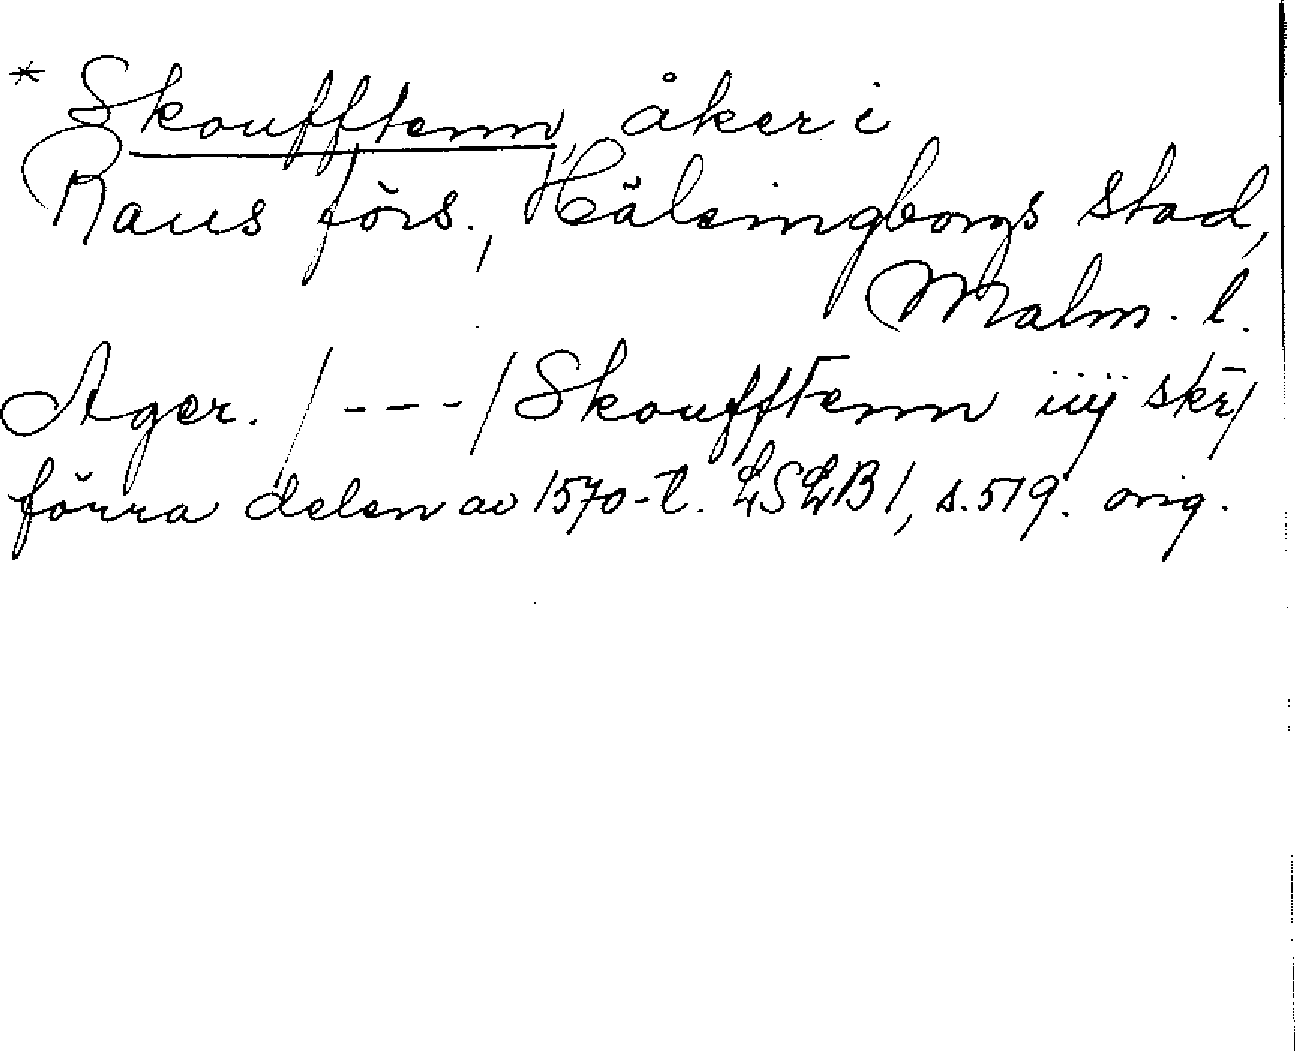 * Skoufftenn, åker i
Raus förs., Hälsingborgs stad,
Malm. l.
Ager. /---/ Skoufftenn iiij skr̄/
förra delen av 1570-t. LSLB 1, s. 519. orig.